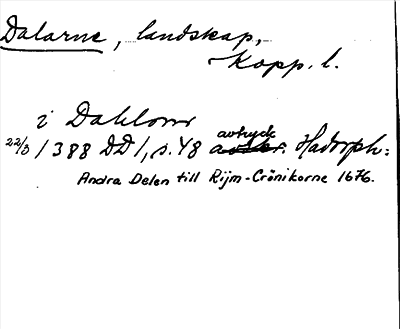 Dalarne, landskap,
Kopp. l.
i Dalom
22/3 1388 DD 1, s. 48 avtryck Hadorph:
Andra Delen till Rijm-Crönikorne 1676.